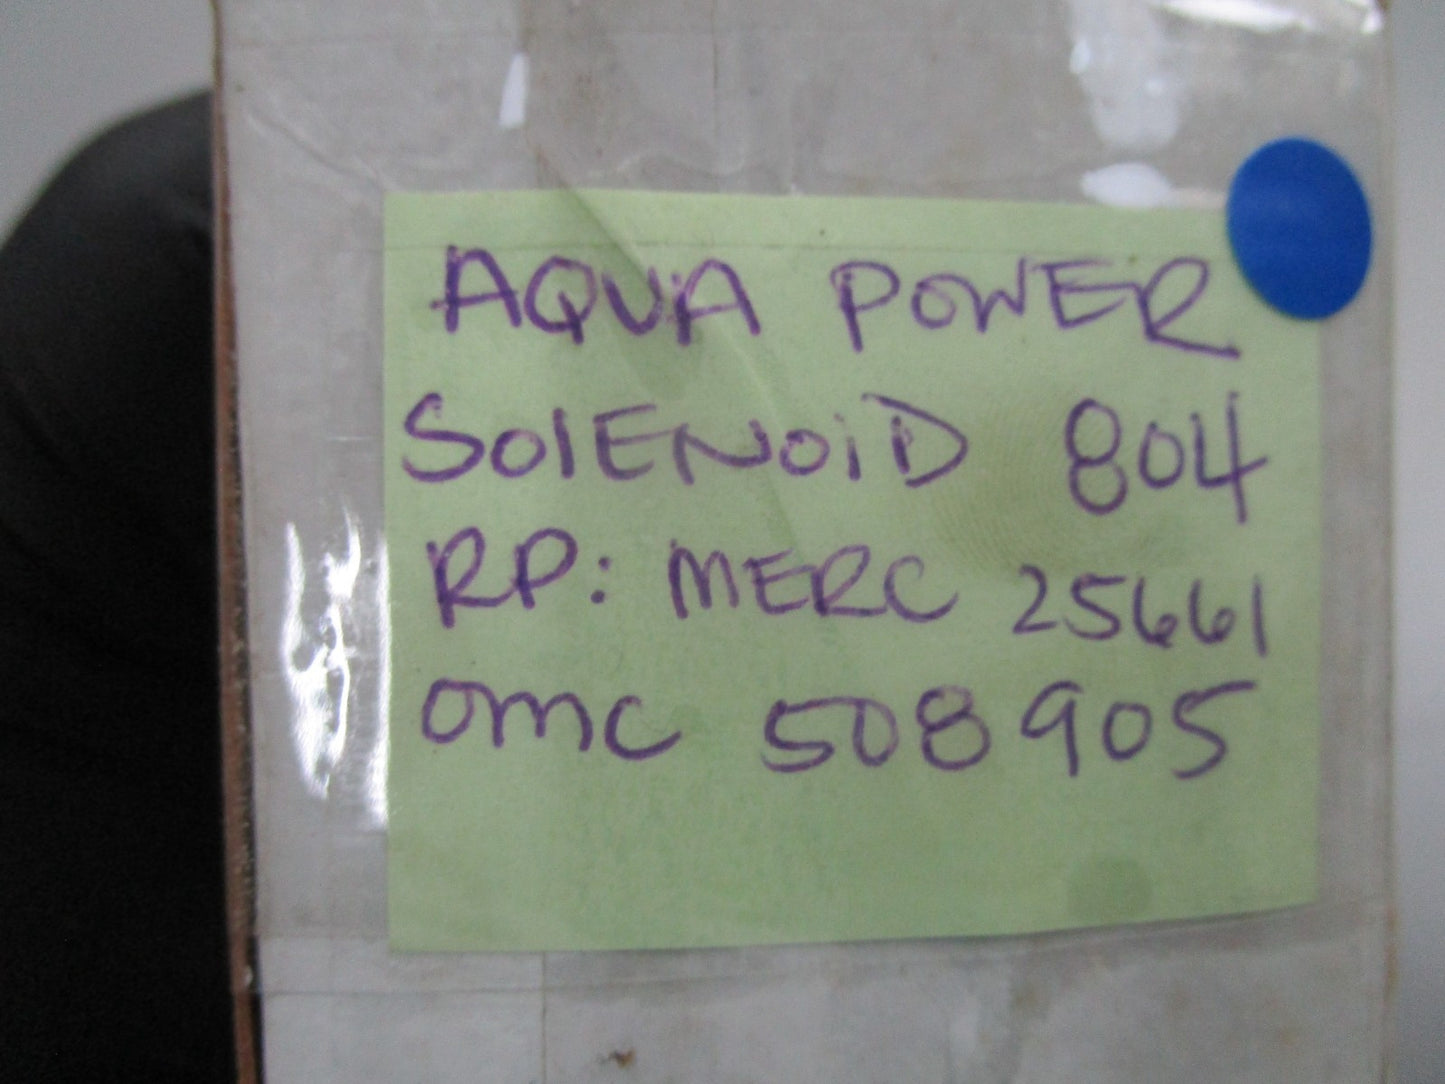 AQUA POWER
SOLENOID 804
RP: MERC 25661
OMC 508905